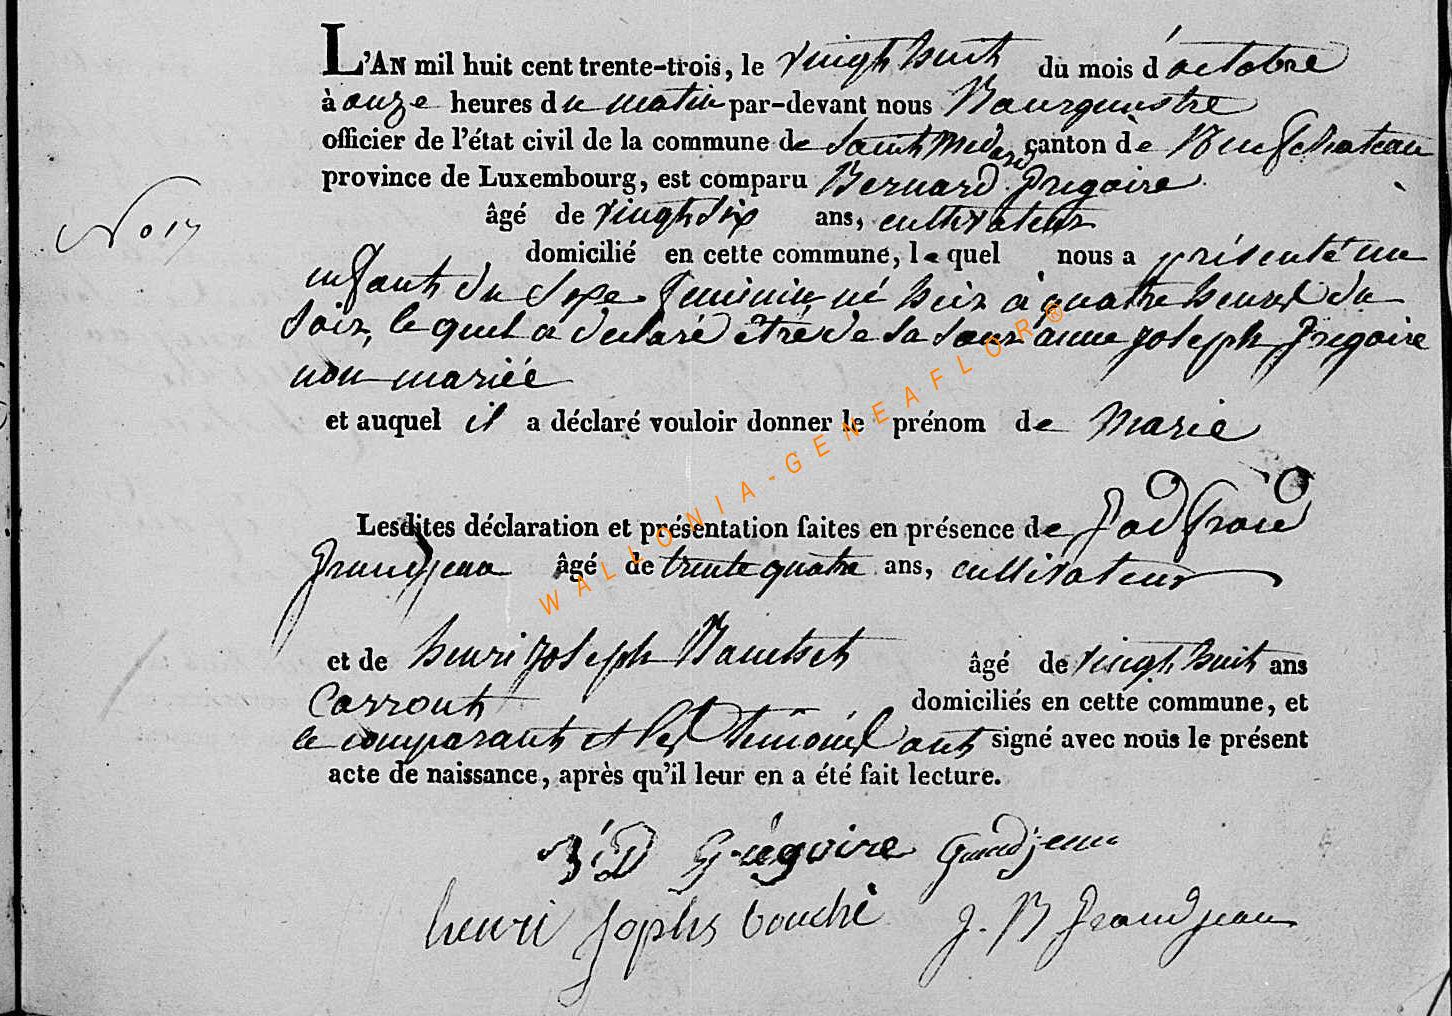 L'AN mil huit cent trente-trois, le vingt huit du mois d'octobre
à onze heures du matin par-devant nous Bourgumstre
officier de l'état civil de la commune de Saint Medard canton de Neufchateau
province de Luxembourg, est comparu Bernard Gregoire
No 17
âgé de vingt Six ans, cultivateur
domicilié en cette commune, le quel nous a présenté un
enfant du Sexe feminin né hier à quatre heures du
Soir, le quel a declaré être de sa Sœur anne joseph Gregoire
non mariée
et auquel il a déclaré vouloir donner le prénom de Marie
Lesdites déclaration et présentation faites en présence de
Grandjean âgé de trente quatre ans, cultivateur
et de henri joseph âgé de vingt huit ans
domiciliés en cette commune, et
le comparant et les témoins ont signé avec nous le présent
acte de naissance, après qu'il leur en a été fait lecture.
Grégoire Grandjean
henri Jophs bouché J. B Grandjean
WALLONIA-GENEAFLOR®